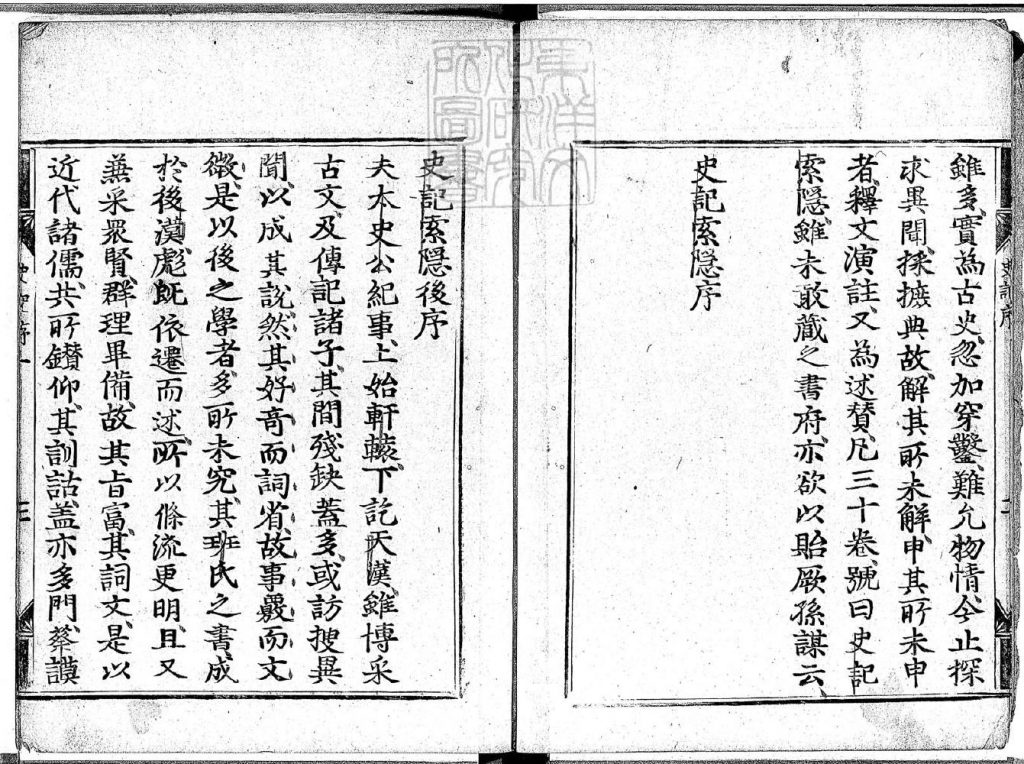 雖多實為古史忽加穿鑿難允物情今止探
求異聞採摭典故解其所未解申其所未申
者釋文演註又為述賛凡三十卷號曰史記
索隠雖未敢藏之書府亦欲以貽厥孫謀云
史記索隠序
史記索隠後序
夫太史公紀事上始軒轅下訖天漢雖博采
古文及傳記諸子其間殘缺蓋多或訪搜異
聞以成其説然其好竒而詞省故事覈而文
微是以後之學者多所未究其班氏之書成
於後漢彪旣依遷而述所以條流更明且又
兼采衆賢群理畢備故其旨富其詞文是以
近代諸儒共所鑚仰其訓詁盖亦多門蔡謨
史記序
史記序一
三